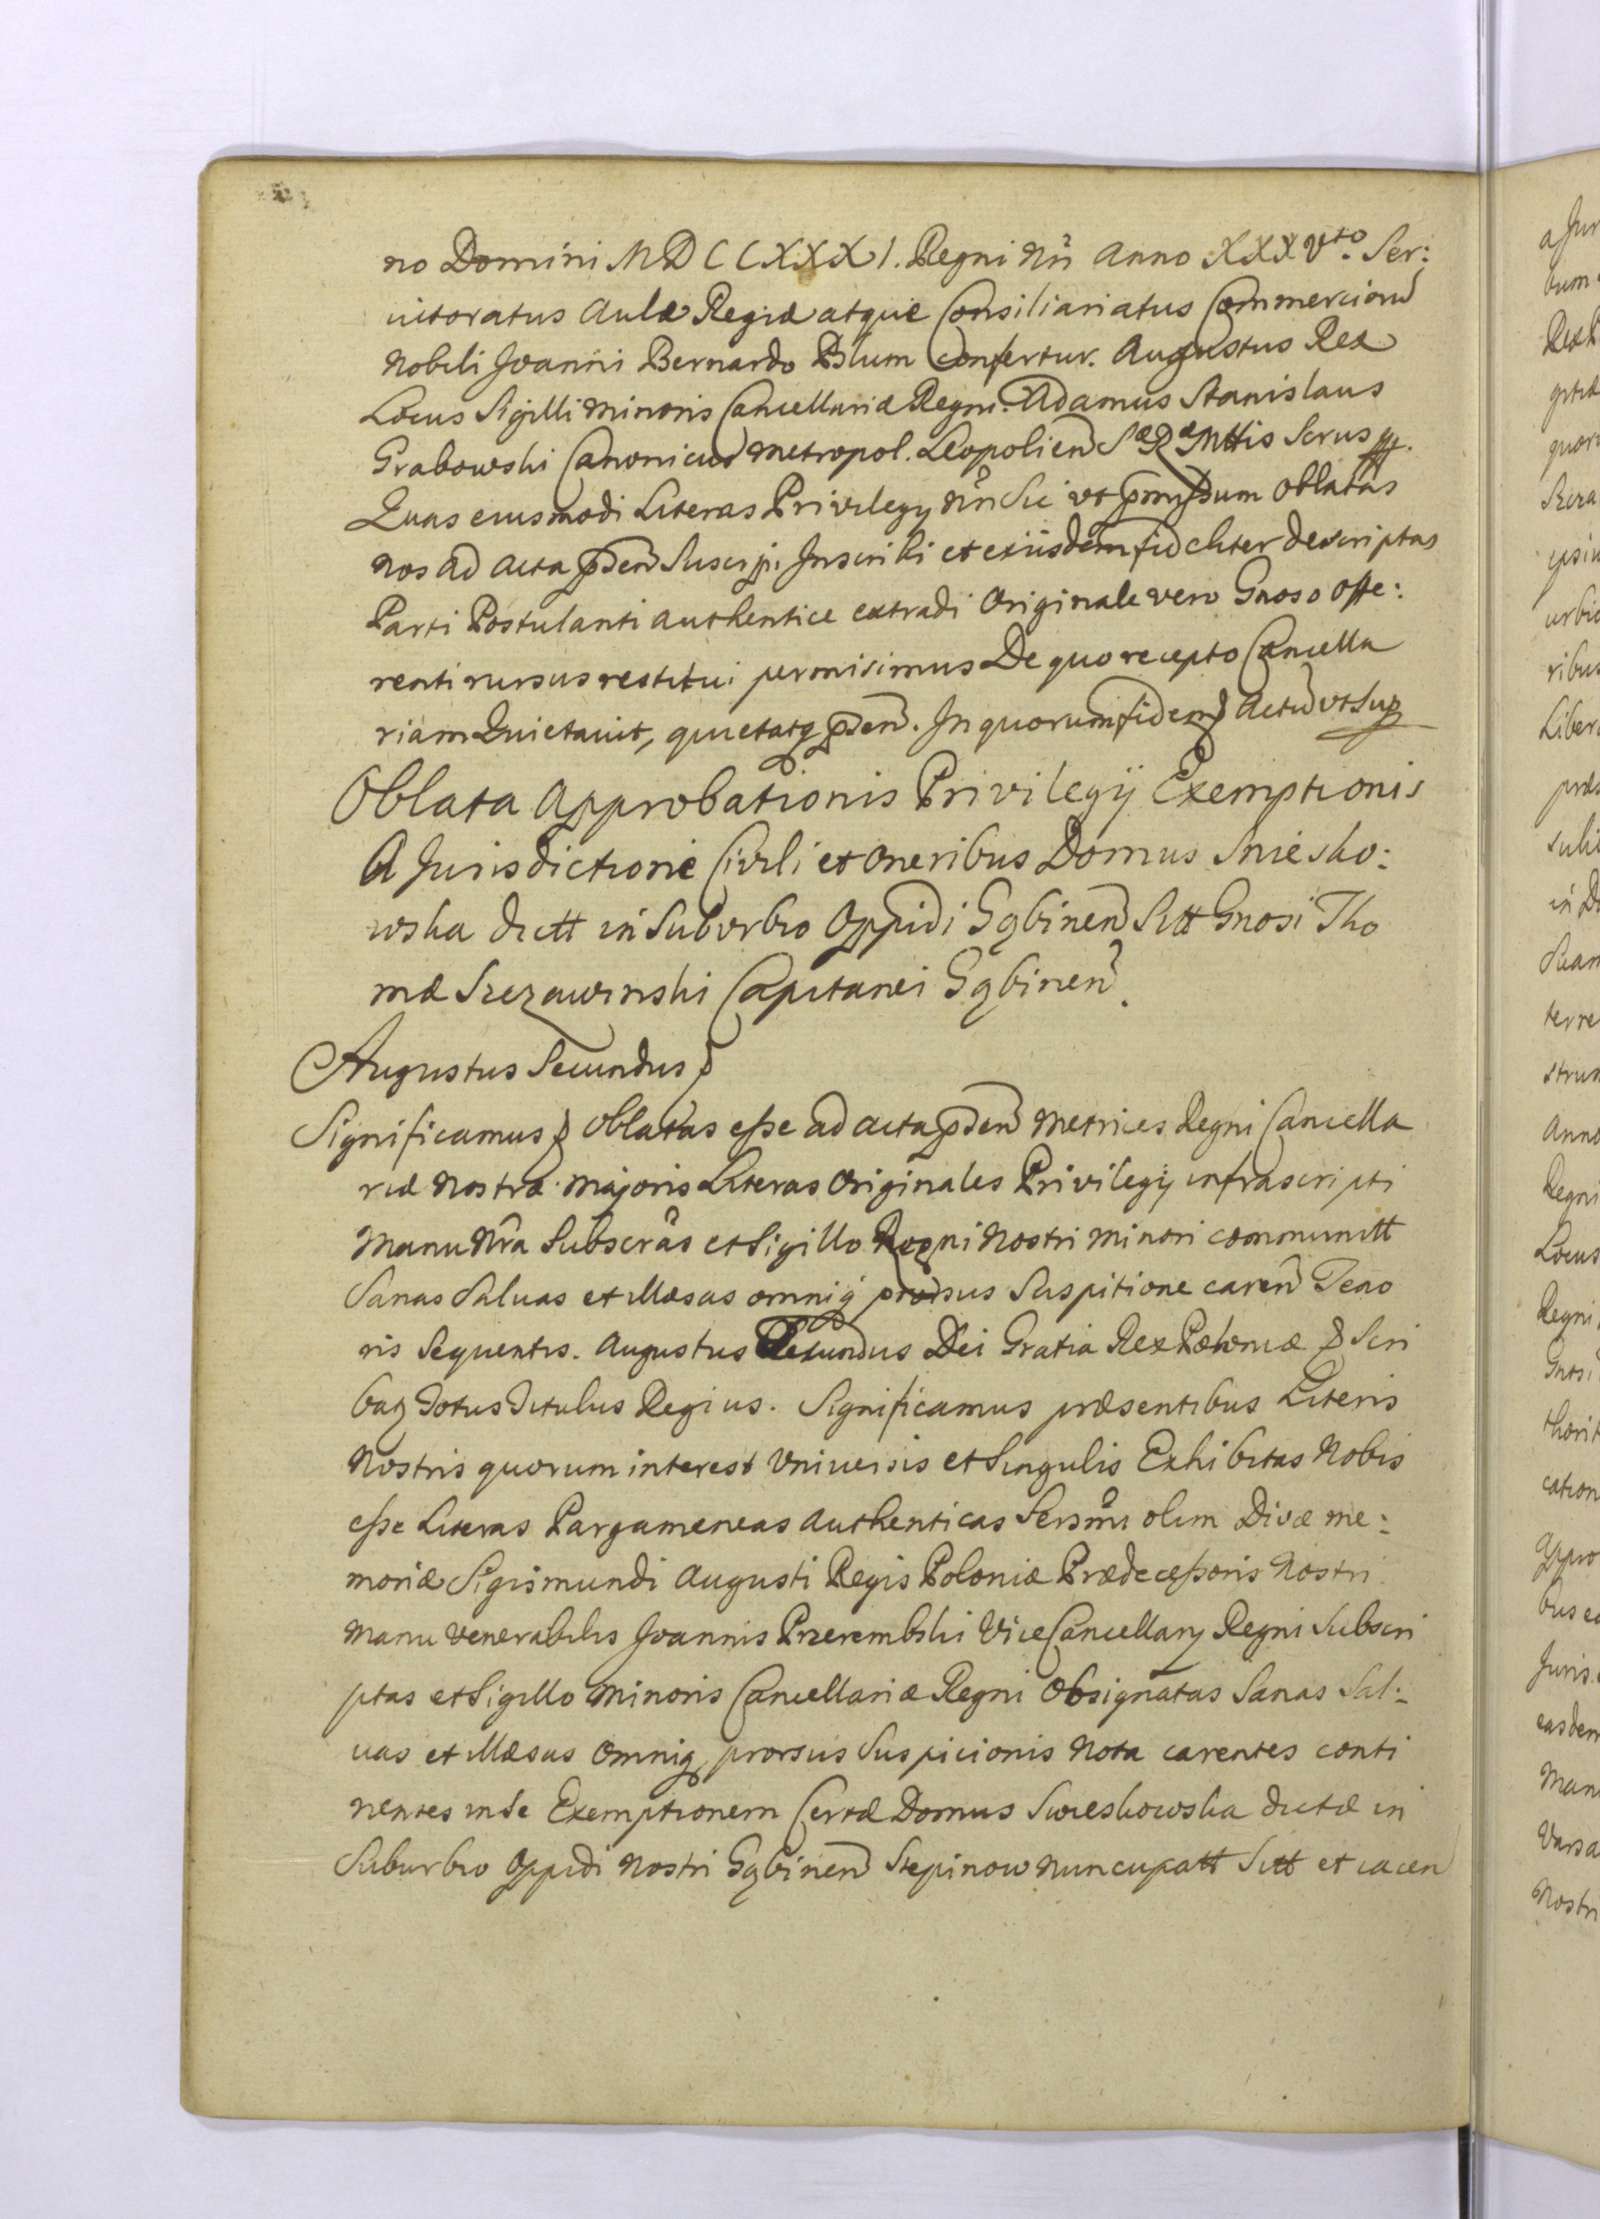 no Domini MDCCXXXI. Regni Nri Anno XXXVto. Ser:
uitoratus Aulæ Regiæ atque Consiliariatus Commerciorũ
Nobili Joanni Bernardo Blum Confertur. Augustus Rex
Locus Sigilli Minoris Cancellariæ Regni. Adamus Stanislaus
Grabowski Canonicus Metropol. Leopolien S Ræ Mttis Scrus
Quas eiusmodi Literas Privilegy Nri Sic vt pmissum oblatas
nos ad acta pſen Suscipi Inscribi et exiisdem fideliter descriptas
Parti Postulanti authentice extradi Originale vero Gnoso offe:
renti rursus restitui permisimus De quo recepto Cancella
riam Quietauit, quietatq pſen. In quorum fidem Actũ vt Sup
Oblata Approbationis Privilegij Exemptionis
A Jurisdictione Civili et oneribus Domus Snieśko:
wska dictt in Suburbio Oppidi Gąbinen Sitt Gnosi Tho
mæ Szczawinski Capitanei Gąbinen.
Augustus Secundus
Significamus oblatas esse ad acta pſen Metrices Regni Cancella
riæ Nostræ Majoris Literas Originales Privilegij infrascripti
Manu Nrã Subscrãs et Sigillo Regni Nostri Minori communitt
Sanas Saluas et illæsas omniq prorsus Suspitione caren Teno
ris Sequentis. Augustus Secundus Dei Gratia Rex Poloniæ Scri
baq Totus Titulus Regius. Significamus præsentibus Literis
Nostris quorum interest Vniuersis et Singulis Exhibitas Nobis
esse Literas Pargameneas Authenticas Sersmi olim Divæ me:
moriæ Sigismundi Augusti Regis Poloniæ Prædecessoris Nostri
Manu Venerabilis Joannis Przerembski ViceCancellary Regni Subscri
ptas et Sigillo Minoris Cancellariæ Regni Obsignatas Sanas Sal:
uas et illæsas Omniq prorsus Suspicionis Nota carentes conti
nentes in Se Exemptionem Certæ Domus Swieskowska dictæ in
Suburbio Oppidi Nostri Gąbinen Stepinow nuncupatt Sitt et iacen